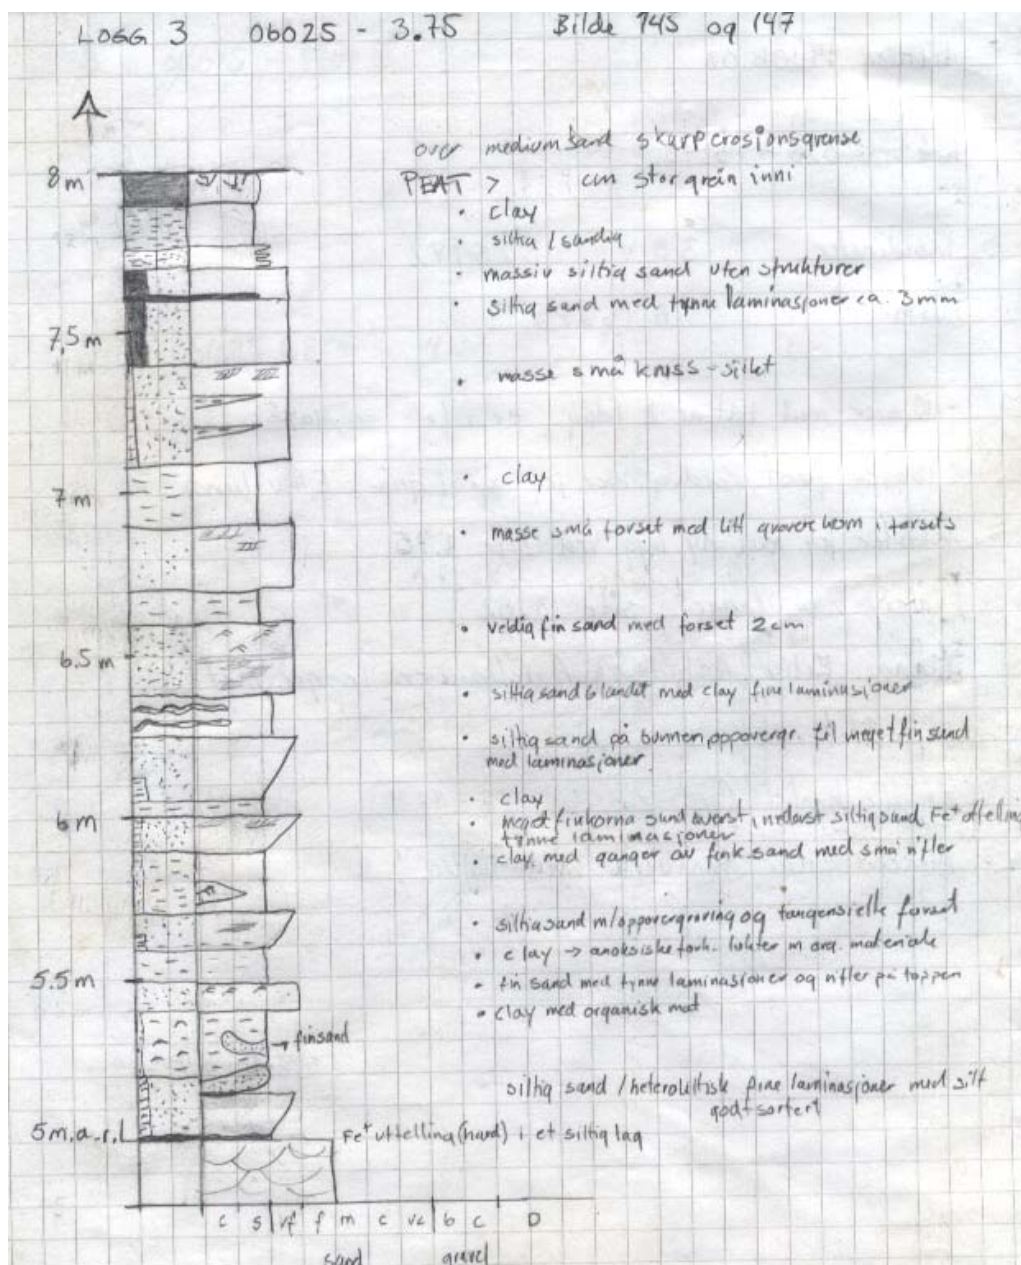 LOGG 3 06025 - 3.75 Bilde 145 og 147
over medium sand skarp erosjonsgrense
8 m
PEAT > cm stor grein inni
• clay
• siltig / sandig
• massiv siltig sand uten strukturer
• siltig sand med tynne laminasjoner ca. 3mm
7,5 m
• masse små kryss-
• clay
7 m
• masse små forset med litt grovere korn i forsets
• veldig fin sand med forset 2 cm
6.5 m
• siltig sand blandet med clay fine laminasjoner
• siltig sand på bunnen oppovergr. til meget fin sand
med laminasjoner
• clay
6 m
• meget finkorna sand øverst, nederst siltig sand Fe+ utfelling
tynne laminasjoner
• clay med ganger av fink. sand med små rifler
• siltig sand m/oppovergroving og tangensielle forset
• clay → anoksiske forh. lukter m org. materiale
5.5 m
• fin sand med tynne laminasjoner og rifler på toppen
• clay med organisk mat
→ finsand
siltig sand / heterolittisk fine laminasjoner med silt
godt sortert
5 m.a.r.l
Fe+ utfelling (hard) i et siltig lag
c s vf f m c vc b c D
sand gravel